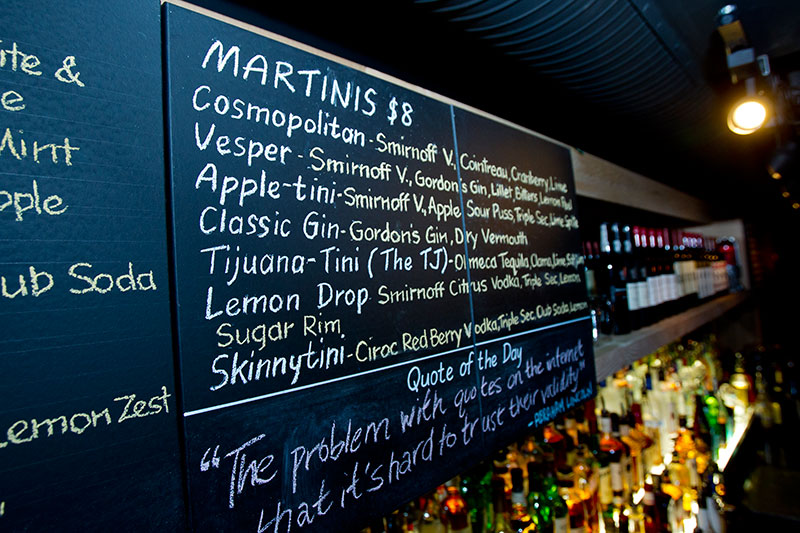 ite &
e
Mint
ple
ub Soda
Lemon Zest
MARTINIS $8
Cosmopolitan - Smirnoff V., Cointreau, Cranberry, Lime
Vesper - Smirnoff V., Gordon's Gin, Lillet, Bitters, Lemon Peel
Apple-tini - Smirnoff V, Apple Sour Puss, Triple Sec, Lime, Sprite
Classic Gin - Gordon's Gin, Dry Vermouth
Tijuana-Tini (The TJ) - Olmeca Tequila, Clama, Lime,
Lemon Drop - Smirnoff Citrus Vodka, Triple Sec, Lemon,
Sugar Rim
Skinnytini - Ciroc Red Berry Vodka, Triple Sec, Club Soda, Lemon
Quote of the Day
"The problem with quotes on the internet
that it's hard to trust their validity"